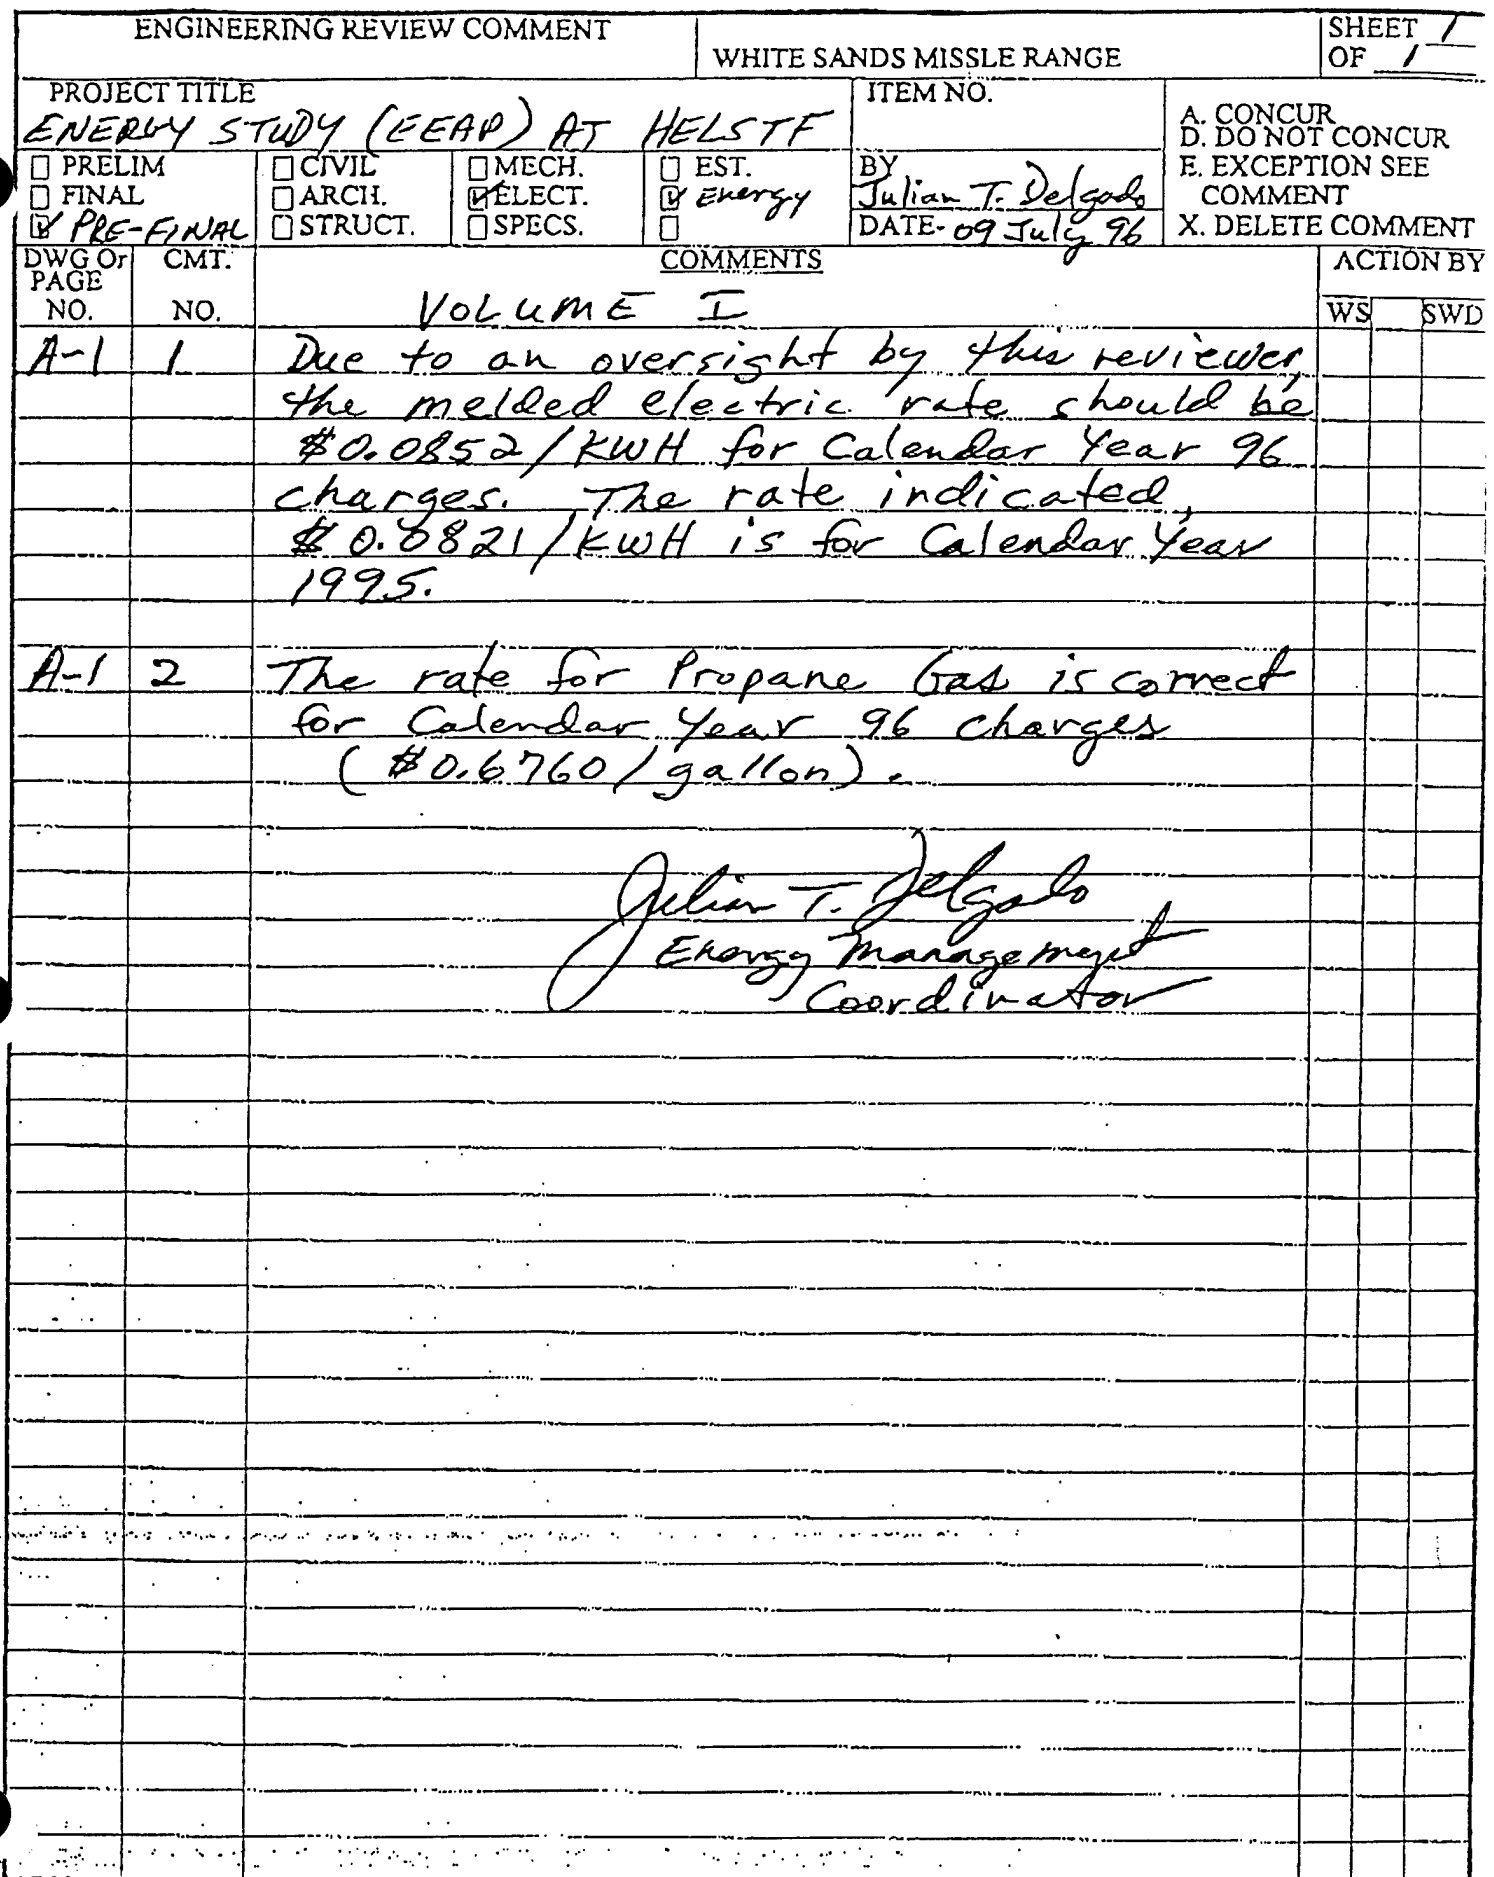 ENGINEERING REVIEW COMMENT
WHITE SANDS MISSLE RANGE
SHEET 1
OF 1
PROJECT TITLE
ENERGY STUDY (EEAP) AT HELSTF
ITEM NO.
A. CONCUR
D. DO NOT CONCUR
E. EXCEPTION SEE
COMMENT
X. DELETE COMMENT
PRELIM
FINAL
PRE-FINAL
CIVIL
ARCH.
STRUCT.
MECH.
ELECT.
SPECS.
EST.
Energy
BY
Julian T. Delgado
DATE- 09 July 96
DWG Or
PAGE
NO.
CMT.
NO.
COMMENTS
VOLUME I
ACTION BY
WS SWD
A-1 1 Due to an oversight by this reviewer,
the melded electric rate should be
$0.0852/KWH for Calendar Year 96
charges. The rate indicated,
$0.0821/KWH is for Calendar Year
1995.
A-1 2 The rate for Propane Gas is correct
for Calendar Year 96 charges
($0.6760/gallon).
Julian T. Delgado
Energy Management
Coordinator